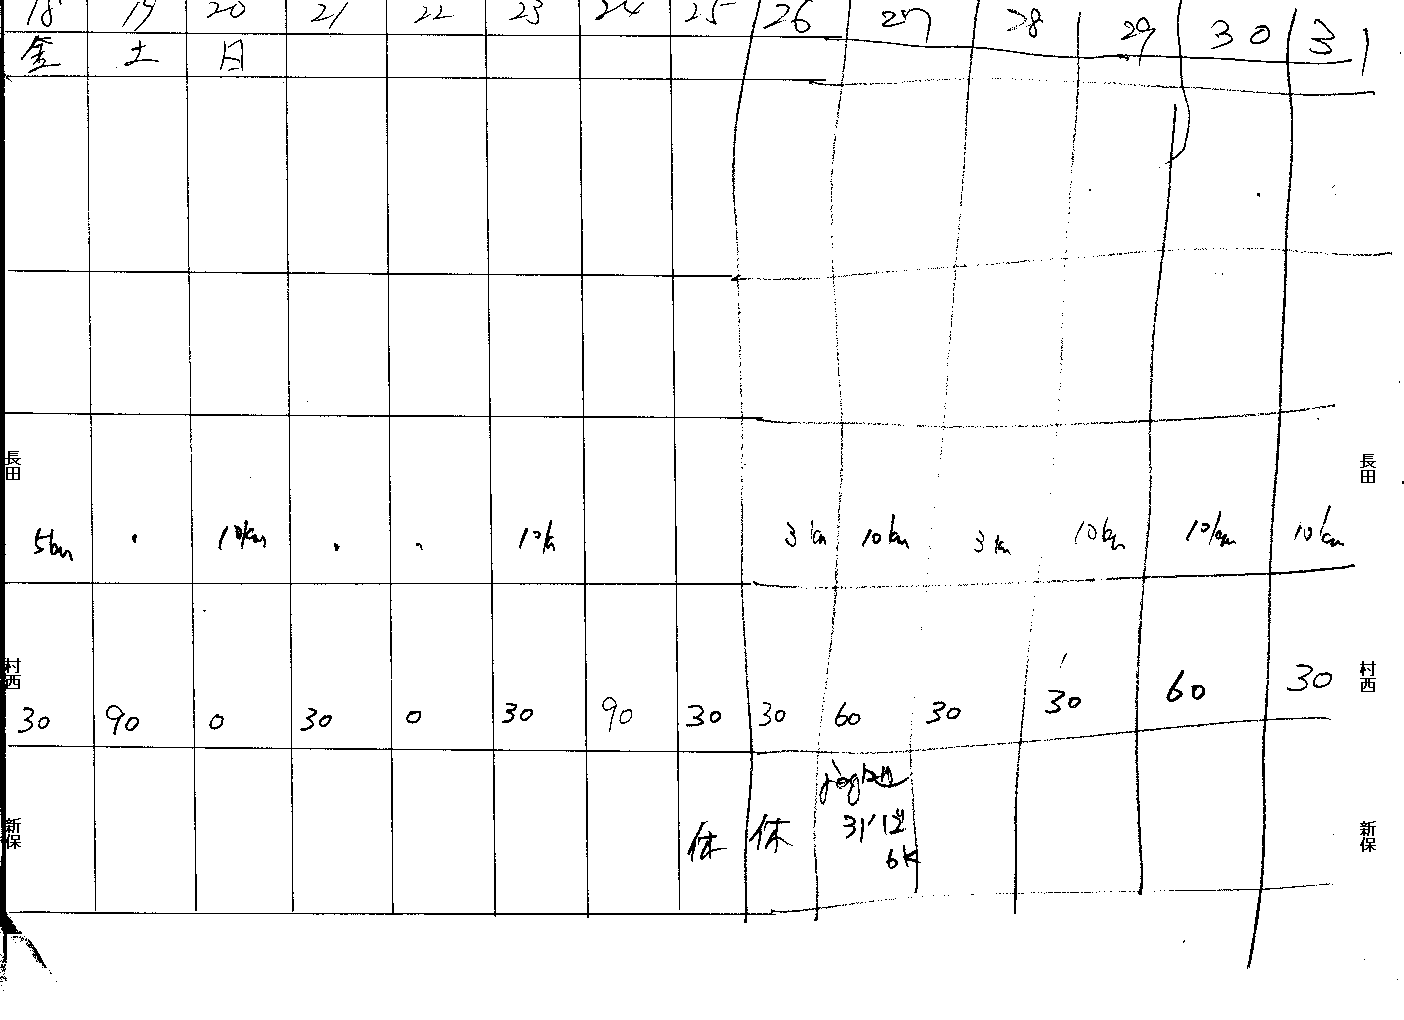 18 19 20 21 22 23 24 25 26 27 28 29 30 31
金 土 日
長田 長田
5km ・ 10km ・ ・ 10k 3km 10km 3km 10km 10km 10km
村西 村西
30 90 0 30 0 30 90 30 30 60 30 30 60 30
新保 新保
休 休 jog
31'12
6K